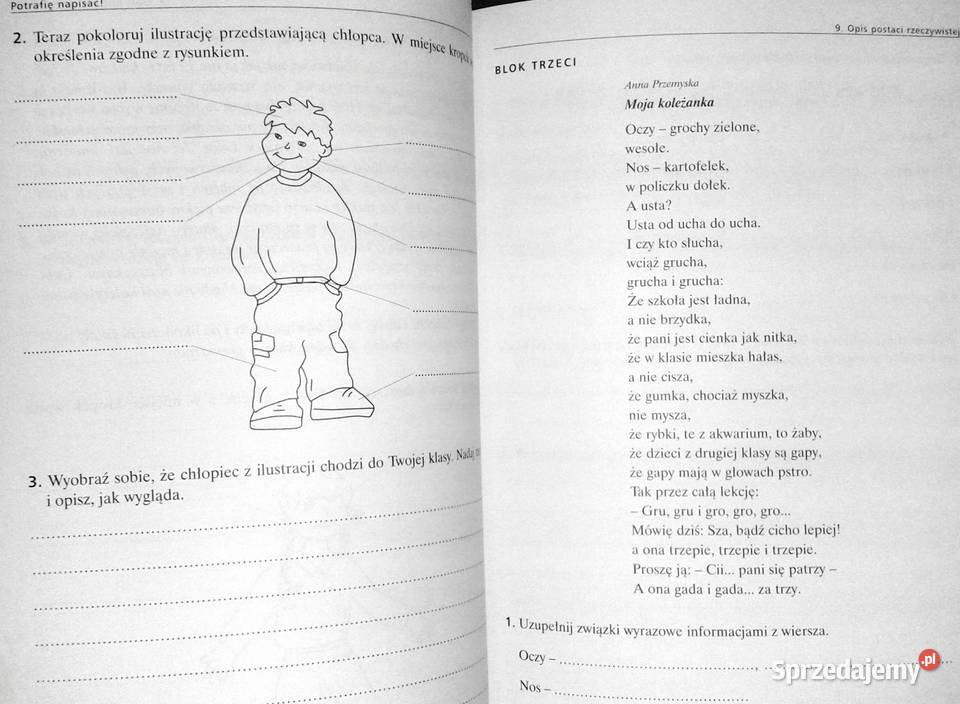 Potrafię napisać!
2. Teraz pokoloruj ilustrację przedstawiającą chłopca. W miejsce kropek
określenia zgodne z rysunkiem.
3. Wyobraź sobie, że chłopiec z ilustracji chodzi do Twojej klasy. Nadaj
i opisz, jak wygląda.
9. Opis postaci rzeczywistej
BLOK TRZECI
Anna Przemyska
Moja koleżanka
Oczy – grochy zielone,
wesołe.
Nos – kartofelek,
w policzku dołek.
A usta?
Usta od ucha do ucha.
I czy kto słucha,
wciąż grucha,
grucha i grucha:
Że szkoła jest ładna,
a nie brzydka,
że pani jest cienka jak nitka,
że w klasie mieszka hałas,
a nie cisza,
że gumka, chociaż myszka,
nie mysza,
że rybki, te z akwarium, to żaby,
że dzieci z drugiej klasy są gapy,
że gapy mają w głowach pstro.
Tak przez całą lekcję:
– Gru, gru i gro, gro, gro...
Mówię dziś: Sza, bądź cicho lepiej!
a ona trzepie, trzepie i trzepie.
Proszę ją: – Cii... pani się patrzy –
A ona gada i gada... za trzy.
1. Uzupełnij związki wyrazowe informacjami z wiersza.
Oczy – ,
Nos –
Sprzedajemy.pl